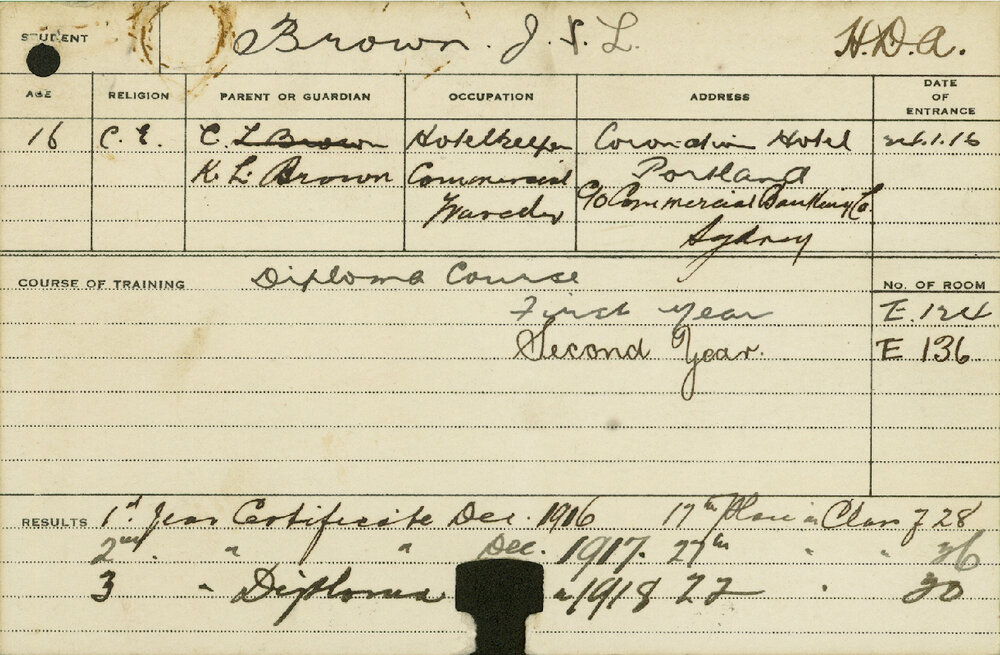 STUDENT Brown. J. S. L. H.D.A.
AGE RELIGION PARENT OR GUARDIAN OCCUPATION ADDRESS DATE OF ENTRANCE
16 C.E. C. L. Brown Hotelkeeper Hotel 1.16
K. L. Brown Commercial Portland
c/o Commercial Banking Co.
Sydney
COURSE OF TRAINING Diploma Course No. OF ROOM
First Year E. 124
Second Year. E 136
RESULTS 1st Year Certificate Dec. 1916 17th Place in Class of 28
2nd " " Dec. 1917. 27th " " 36
3 " Diploma " 1918 22 "